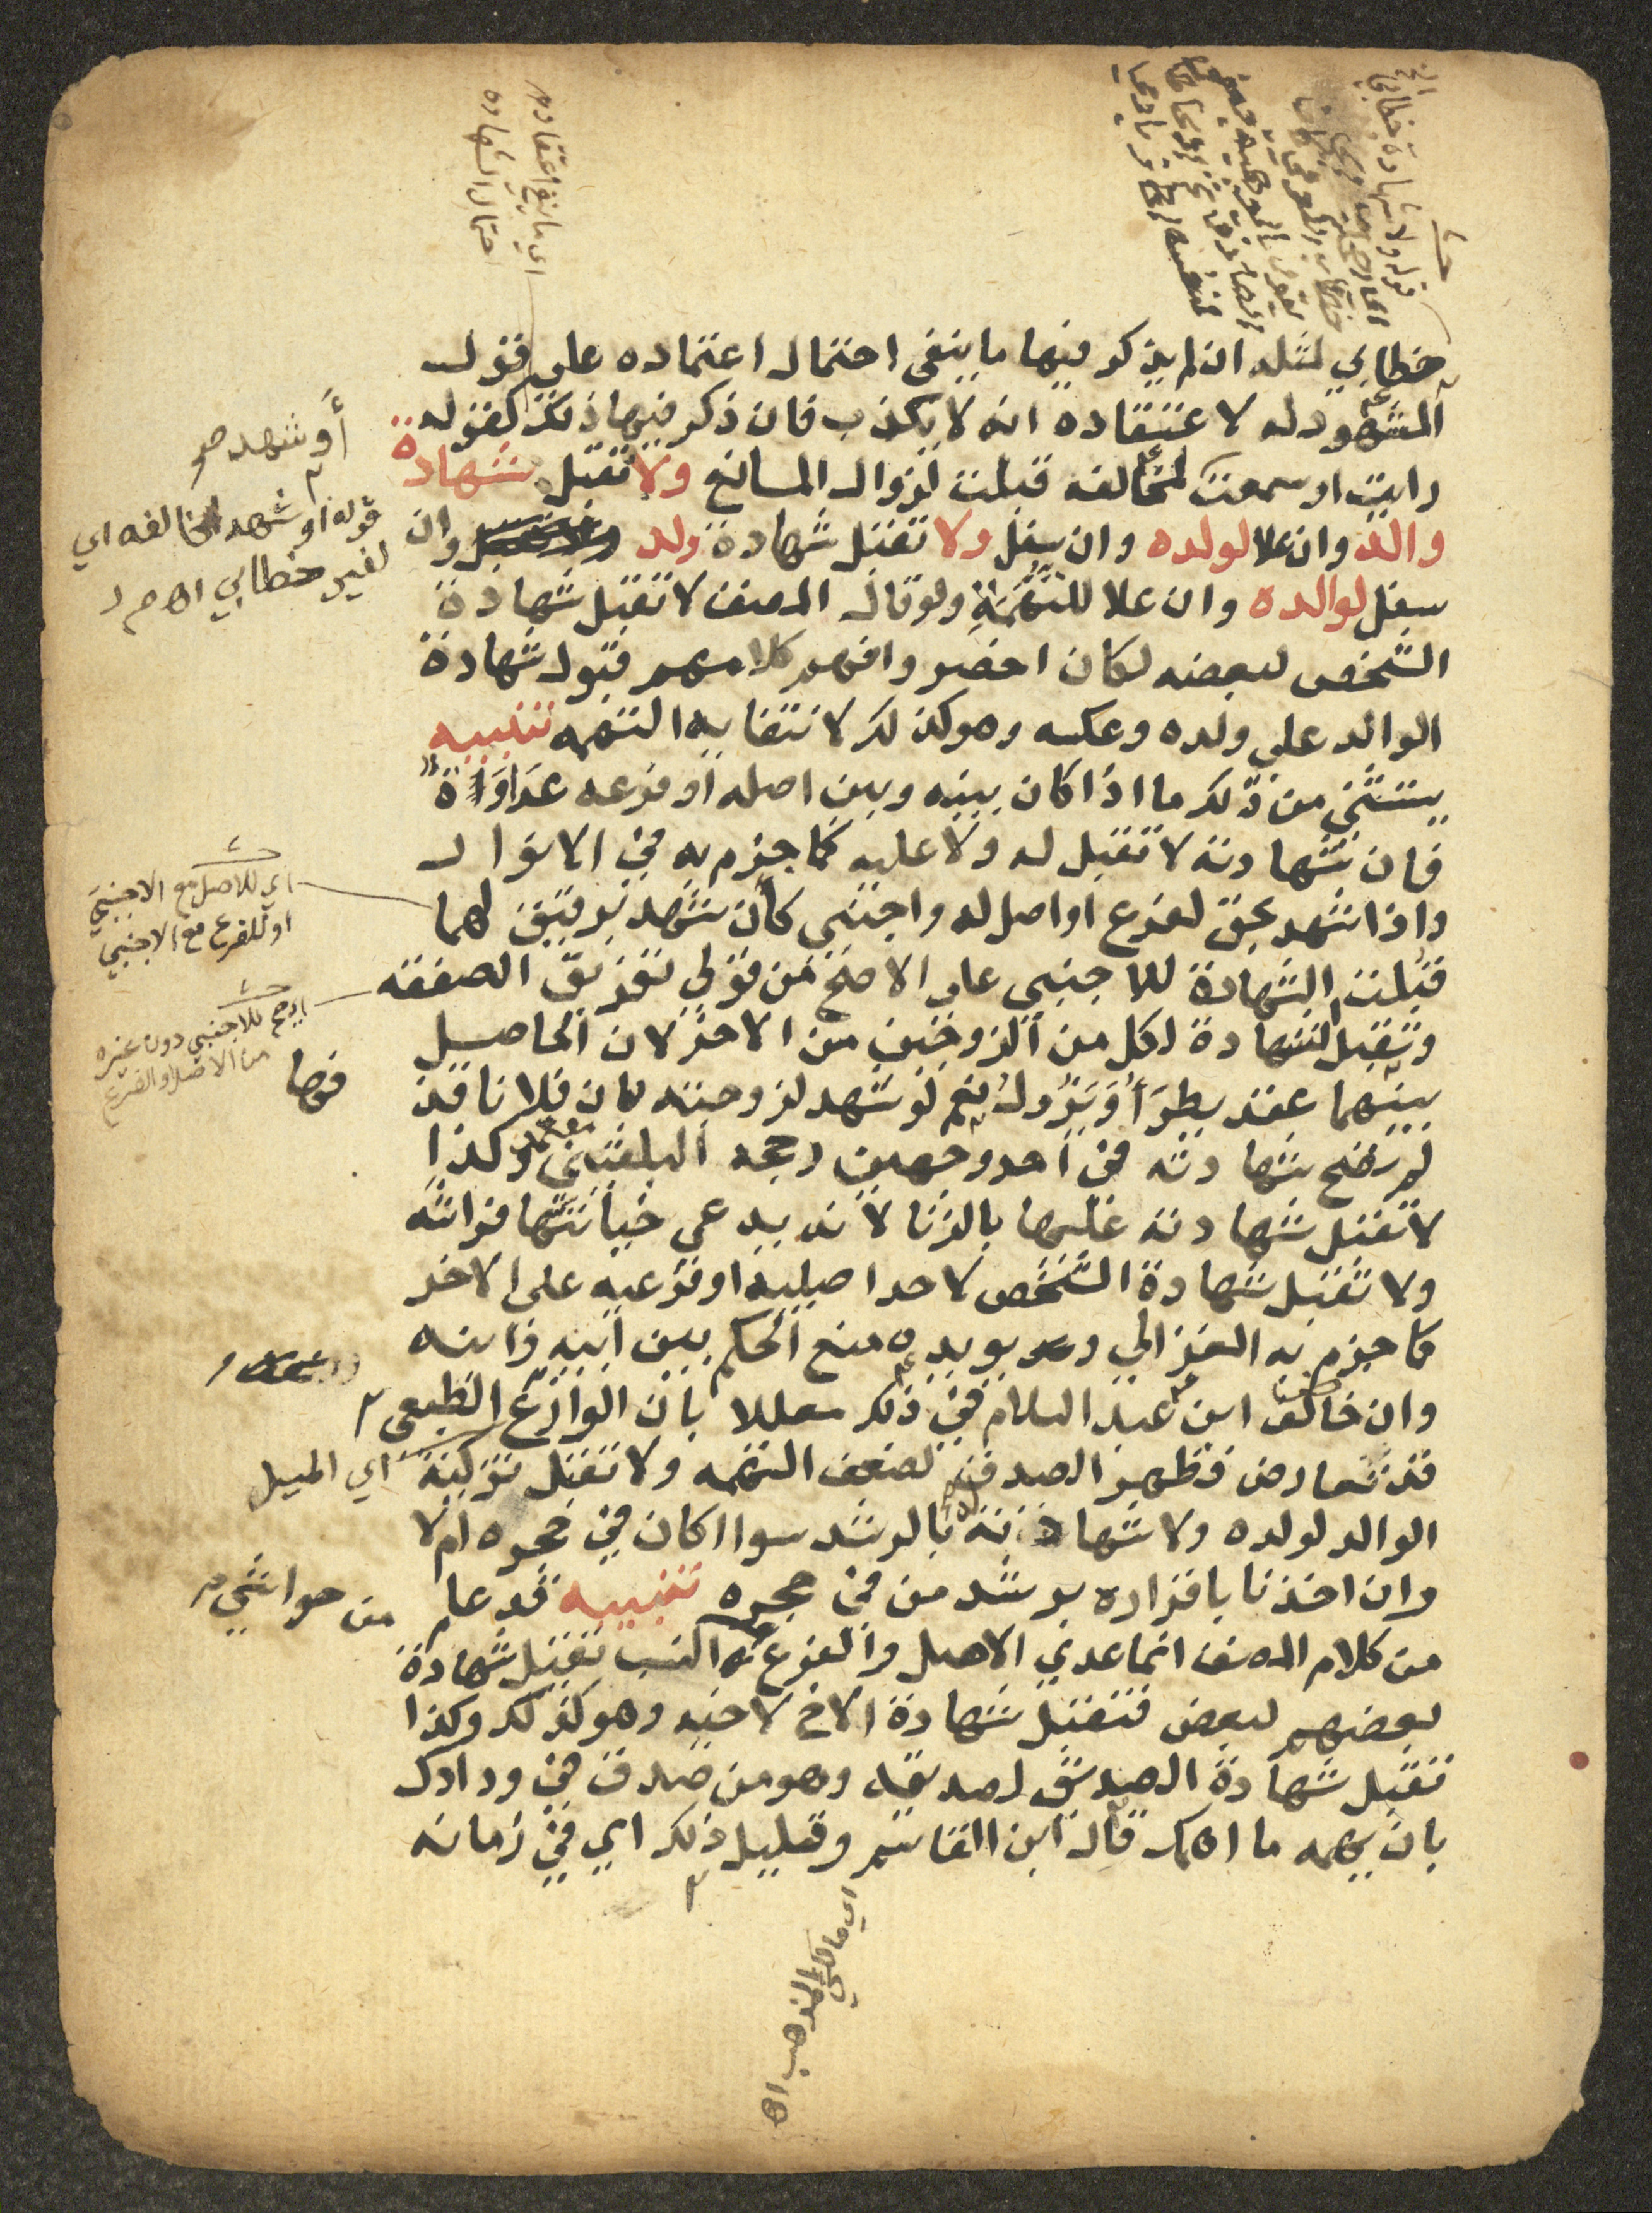 خطابي لمثله ان لم يذكر فيها ما ينفى احتمال اعتماده على قول
المشهود له لاعتقاده انه لا يكذب فان ذكر فيها ذلك كقوله
رايت او سمعت لمخالفه قبلت لزوال المانع ولا تقبل شهادة
والد وان علا لولده وان سفل ولا تقبل شهادة ولد وان
سفل لوالده وان علا للتهمة ولو قال المصنف لا تقبل شهادة
الشخص لبعضه لكان اخصر وافهم كلامهم قبول شهادة
الوالد على ولده وعكسه وهو كذلك لانتفايه التهمه تنبيه
يستثنى من ذلك ما اذا كان بينه وبين اصله او فرعه عداوة
فان شهادته لا تقبل له ولا عليه كما جزم به في الانوار
واذا شهد بحق لفرع او اصل له واجنبي كأن شهد برقيق لهما
قبلت الشهادة للاجنبي على الاصح من قولي تفريق الصفقه
وتقبل الشهادة لكل من الزوجين من الاخر لان الحاصل
بينهما عقد يطرأ ويزول نعم لو شهد لزوجته بان فلانا قذ
فها
لم تصح شهادته في احد وجهين رجحه البلقيني وكذا
لا تقبل شهادته عليها بالزنا لانه يدعى خيانتها فراشه
ولا تقبل شهادة الشخص لاحد اصليه او فرعيه على الاخر
كما جزم به الغزالي ويويده منع الحكم بين ابيه وابنه
وان خالف ابن عبد السلام في ذلك معللا بان الوازع الطبعى
قد تعارض فظهر الصدق لضعف التهمه ولا تقبل تزكية
الوالد لولده ولا شهادته له بالرشد سوا اكان في حجره ام لا
وان اخذنا باقراره برشد من في حجره تنبيه قد علم
من كلام المصنف انما عدي الاصل والفرع من النسب تقبل شهادة
بعضهم لبعض فتقبل شهادة الاخ لاخيه وهو كذلك وكذا
تقبل شهادة الصديق لصديقه وهو من صدق في ودادك
بان يهمه ما اهمك قال ابن القاسم وقليل ذلك اي في زمانه
أو شهد صح
قوله او شهد لمخالفه اي
لغير خطابي اه م ر
اي للاصل مع الاجنبي
او للفرع مع الاجنبي
ايصح للاجنبي دون غيره
من الاصل والفرع
اي الميل
من حواشي م ر
اي مانع اعتقاده م
احتمال الشهاده
قوله ولا شهادة خطابي
اي مالكي المذهب اه